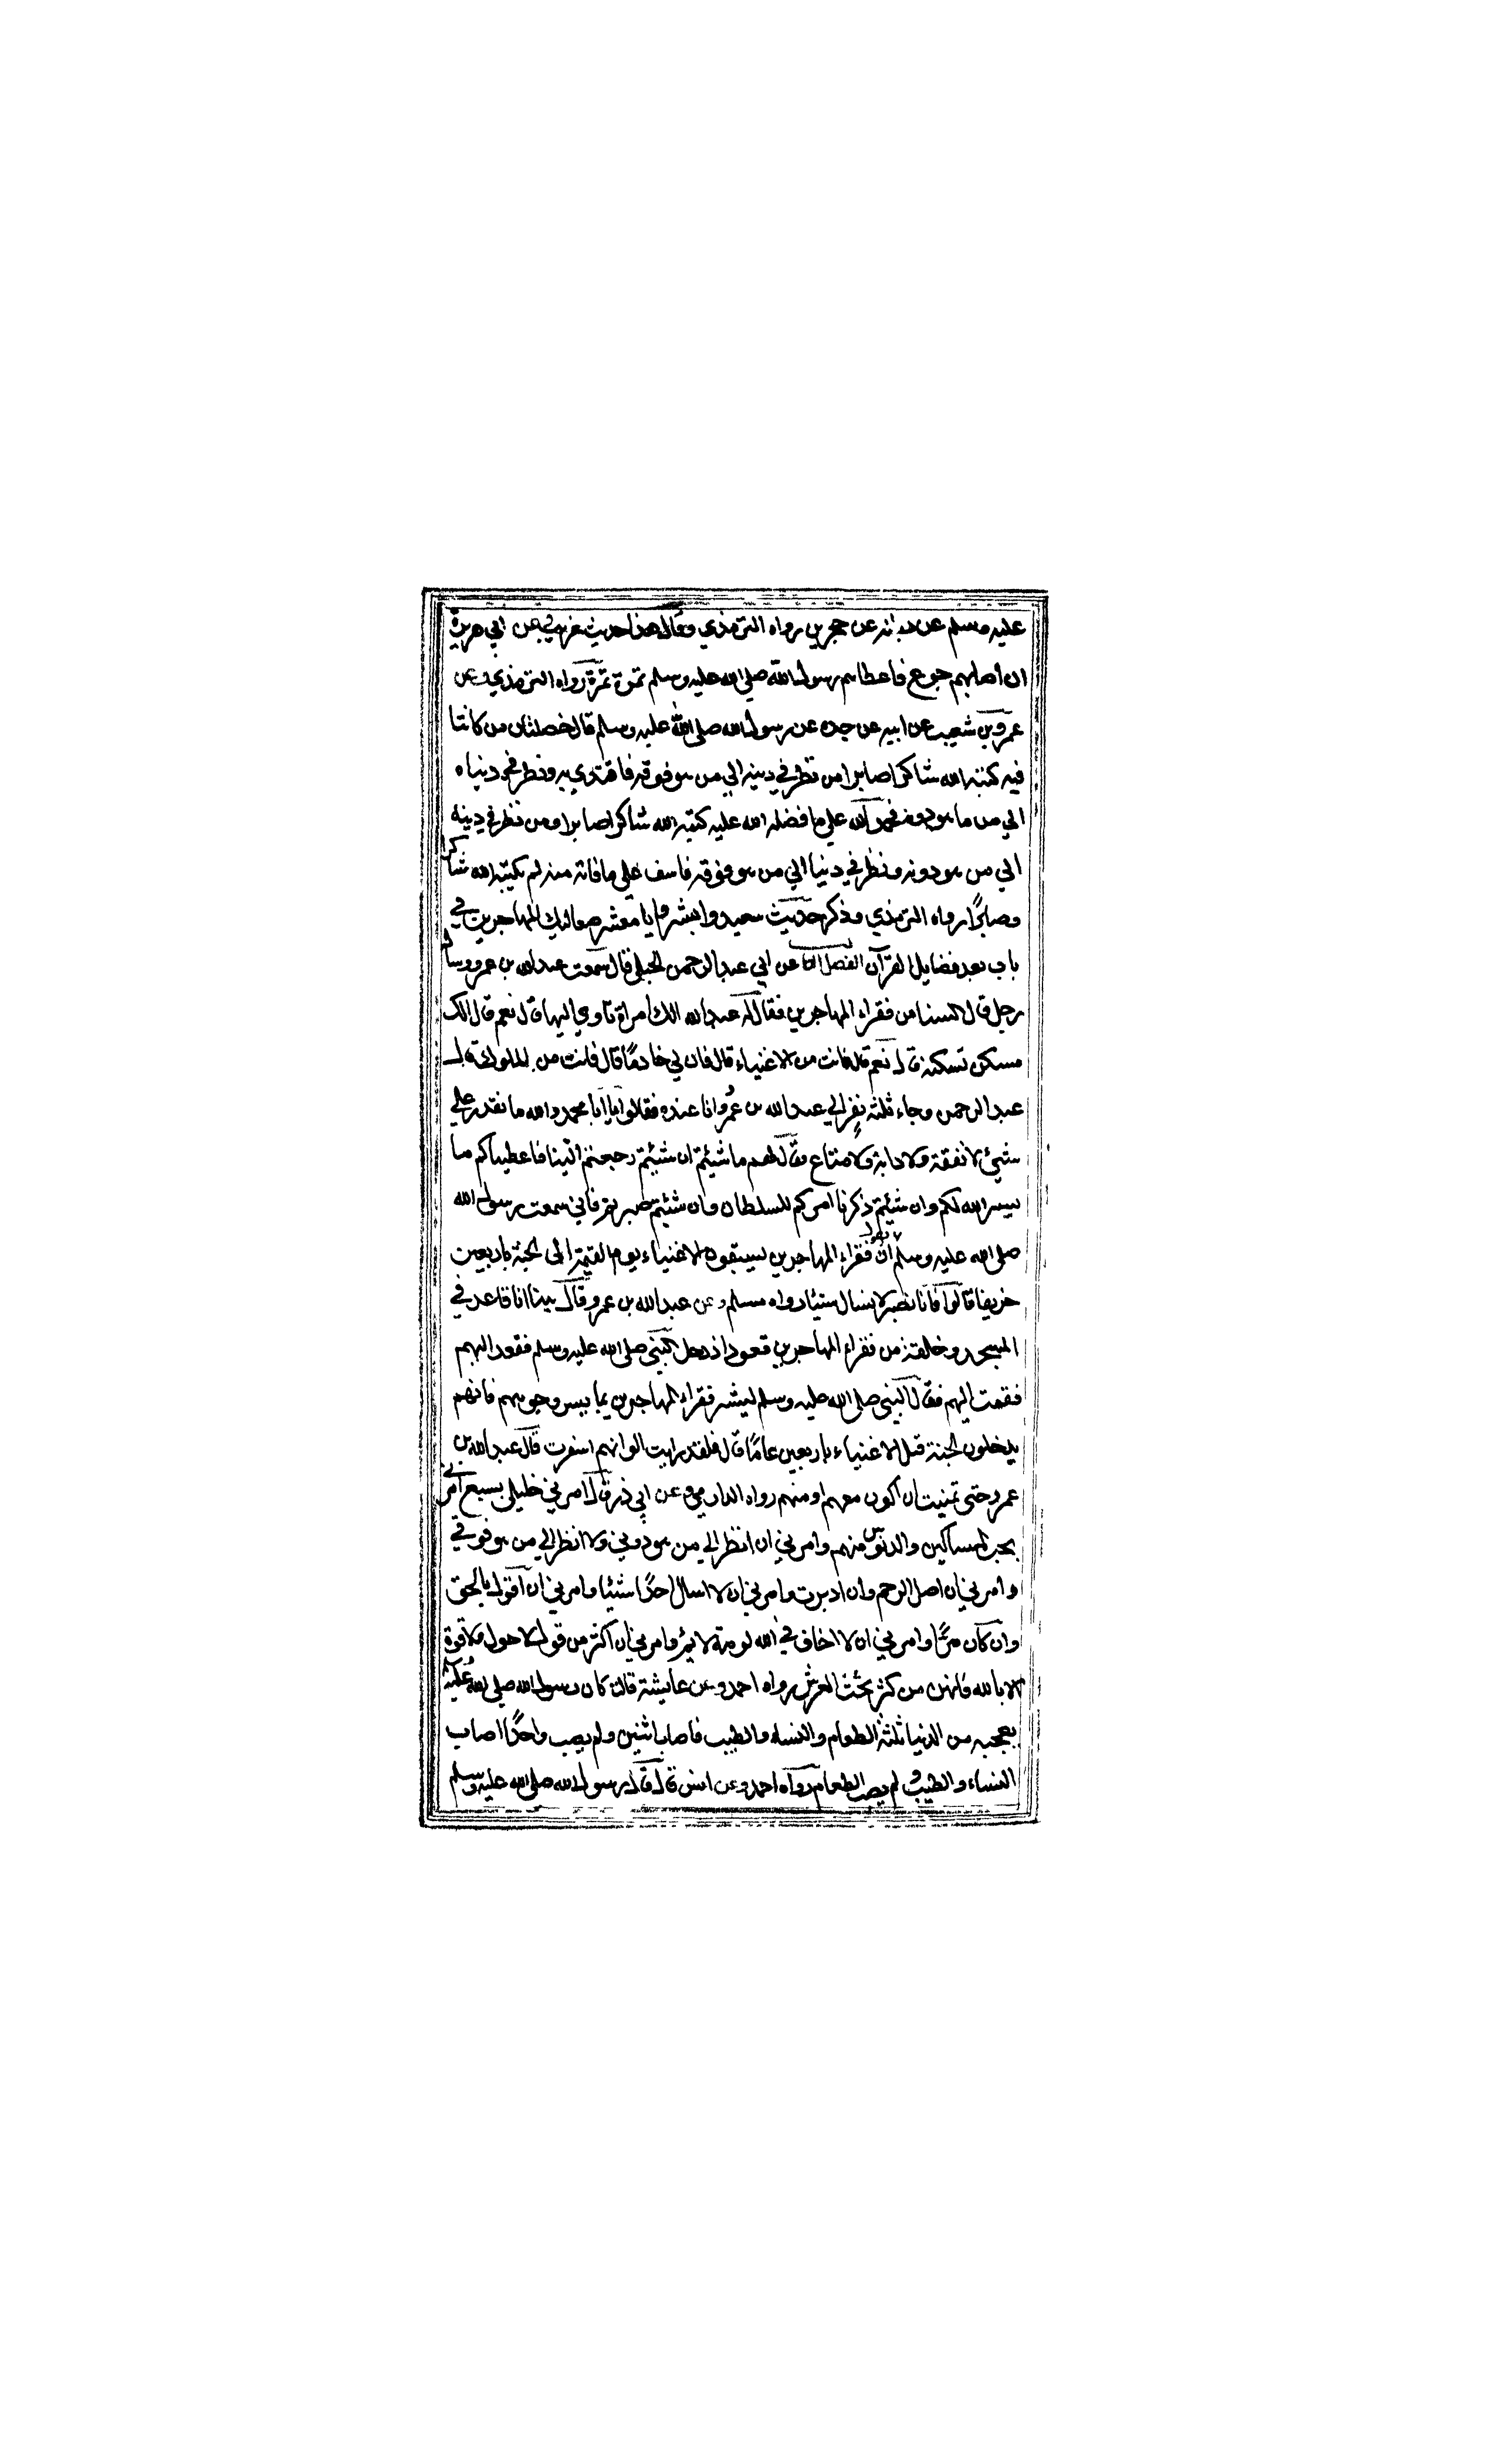 عليه وسلم عن بطنه عن حجرين رواه الترمذي وقال هذا حديث غريب وعن ابي هريرة
ان اصابهم جوع فاعطاهم رسول الله صلي الله عليه وسلم تمرة تمرة رواه الترمذي وعن
عمرو بن شعيب عن ابيه عن جده عن رسول الله صلي الله عليه وسلم قال خصلتان من كانتا
فيه كتبه الله شاكرا صابرا من نظر في دينه الي من هو فوقه فاقتدي به ونظر في دنياه
الي من ما هو دونه فحمد الله علي ما فضله الله عليه كتبه الله شاكرا صابرا ومن نظر في دينه
الي من هو دونه ونظر في دنيا الي من هو فوقه فاسف علي ما فاته منه لم يكتبه الله شاكرا
وصابرًا رواه الترمذي وذكر حديث سعيد وابشروا يا معشر صعاليك المهاجرين في
باب بعد فضايل القرآن الفصل عن ابي عبد الرحمن الحبلي قال سمعت عبد الله بن عمرو وساله
رجل قال السنا من فقراء المهاجرين فقال له عبد الله الك امراة تاوي اليها قال نعم قال الك
مسكن تسكنه قال نعم قال فانت من الاغنياء قال فان لي خادمًا قال فانت من الملوك قال
عبد الرحمن وجاء ثلثة نفر الي عبد الله بن عمرو انا عنده فقالوا يا ابا محمد والله ما نقدر علي
شيئ لا نفقة ولا دابة ولا متاع فقال لهم ما شيئتم ان شيئتم رجعتم الينا فاعطيناكم ما
يسر الله لكم وان شيئتم ذكرنا امركم للسلطان وان شئتم صبرتم فاني سمعت رسول الله
صلي الله عليه وسلم يقول ان فقراء المهاجرين يسبقون الاغنياء يوم القيمة الي الجنة باربعين
خريفا قالوا فانا نصبر لا نسال شيئا رواه مسلم وعن عبد الله بن عمرو قال بينا انا قاعد في
المسجد وحلقة من فقراء المهاجرين قعود اذ دخل النبي صلي الله عليه وسلم فقعد اليهم
فقمت اليهم فقال النبي صلي الله عليه وسلم ليبشر فقراء المهاجرين بما يسر وجوههم فانهم
يدخلون الجنة قبل الاغنياء باربعين عامًا قال فلقد رايت الوانهم اسفرت قال عبد الله بن
عمرو حتي تمنيت ان اكون معهم او منهم رواه الدارمي وعن ابي ذر قال امرني خليلي بسبع امرني
بحب المساكين والدنو منهم وامرني ان انظر الي من هو دوني ولا انظر الي من هو فوقي
وامرني ان اصل الرحم وان ادبرت وامرني ان لا اسال احدًا شيئا وامرني ان اقول بالحق
وان كان مرًّا وامرني ان لا اخاف في الله لومة لايم وامرني ان اكثر من قول لا حول ولا قوة
الا بالله فانهن من كنز تحت العرش رواه احمد وعن عايشة قالت كان رسول الله صلي الله عليه
يعجبه من الدنيا ثلثة الطعام والنساء والطيب فاصاب اثنين ولم يصب واحدًا اصاب
النساء والطيب ولم يصب الطعام رواه احمد وعن انس قال قال رسول الله صلي الله عليه وسلم